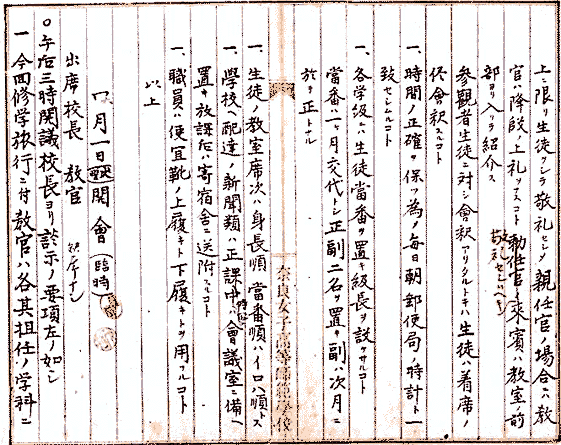 上ニ限リ生徒ヲシテ敬礼セシメ親任官ノ場合ハ教
官ハ降段上礼ヲナスコト勅任官ノ来賓ハ教室前
部ヨリ入リテ紹介ス
参観者生徒ニ対シ會釈アリタルトキハ生徒ハ着席ノ
侭會釈スルコト
一、時間ノ正確ヲ保ツ為メ毎日朝郵便局ノ時計ト一
致セシムルコト
一、各学級ハ生徒當番ヲ置キ級長ヲ設ケサルコト
當番ハ一ヶ月交代トシ正副二名ヲ置キ副ハ次月ニ
於テ正トナル
一、生徒ノ教室席次ハ身長順當番順ハイロハ順トス
一、學校ヘ配達ノ新聞類ハ正課中ハ會議室ニ備ヘ
置キ放課后ハ寄宿舎ニ送附スルコト
一、職員ハ便宜靴ノ上履キト下履キトヲ用フルコト
以上
月一日開會(臨時)
出席校長 教官
〇午后三時開議校長ヨリ諮示ノ要項左ノ如シ
一 今回修学旅行ニ付教官ハ各其担任ノ学科ニ
奈良女子高等師範學校